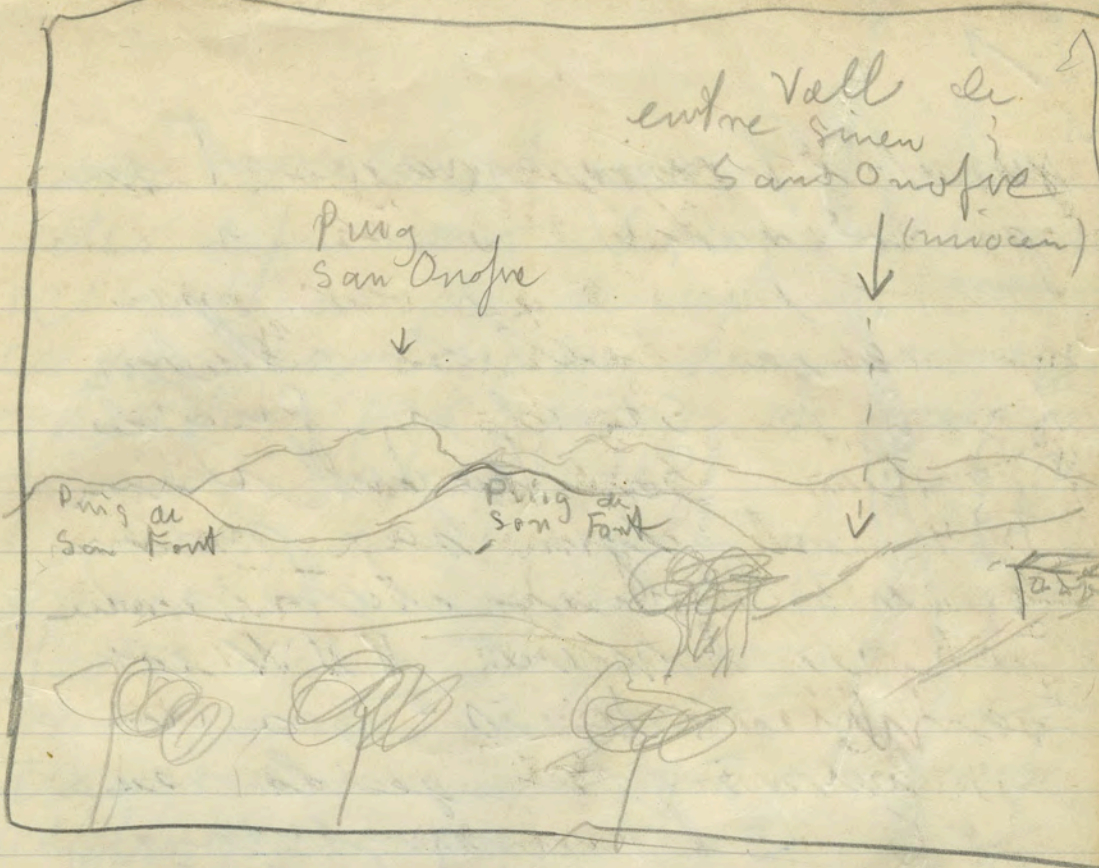 Vall de
entre Sineu i
Sant Onofre
(miocen)
Puig
San Onofre
Puig de
Son Font
Puig de
Son Font